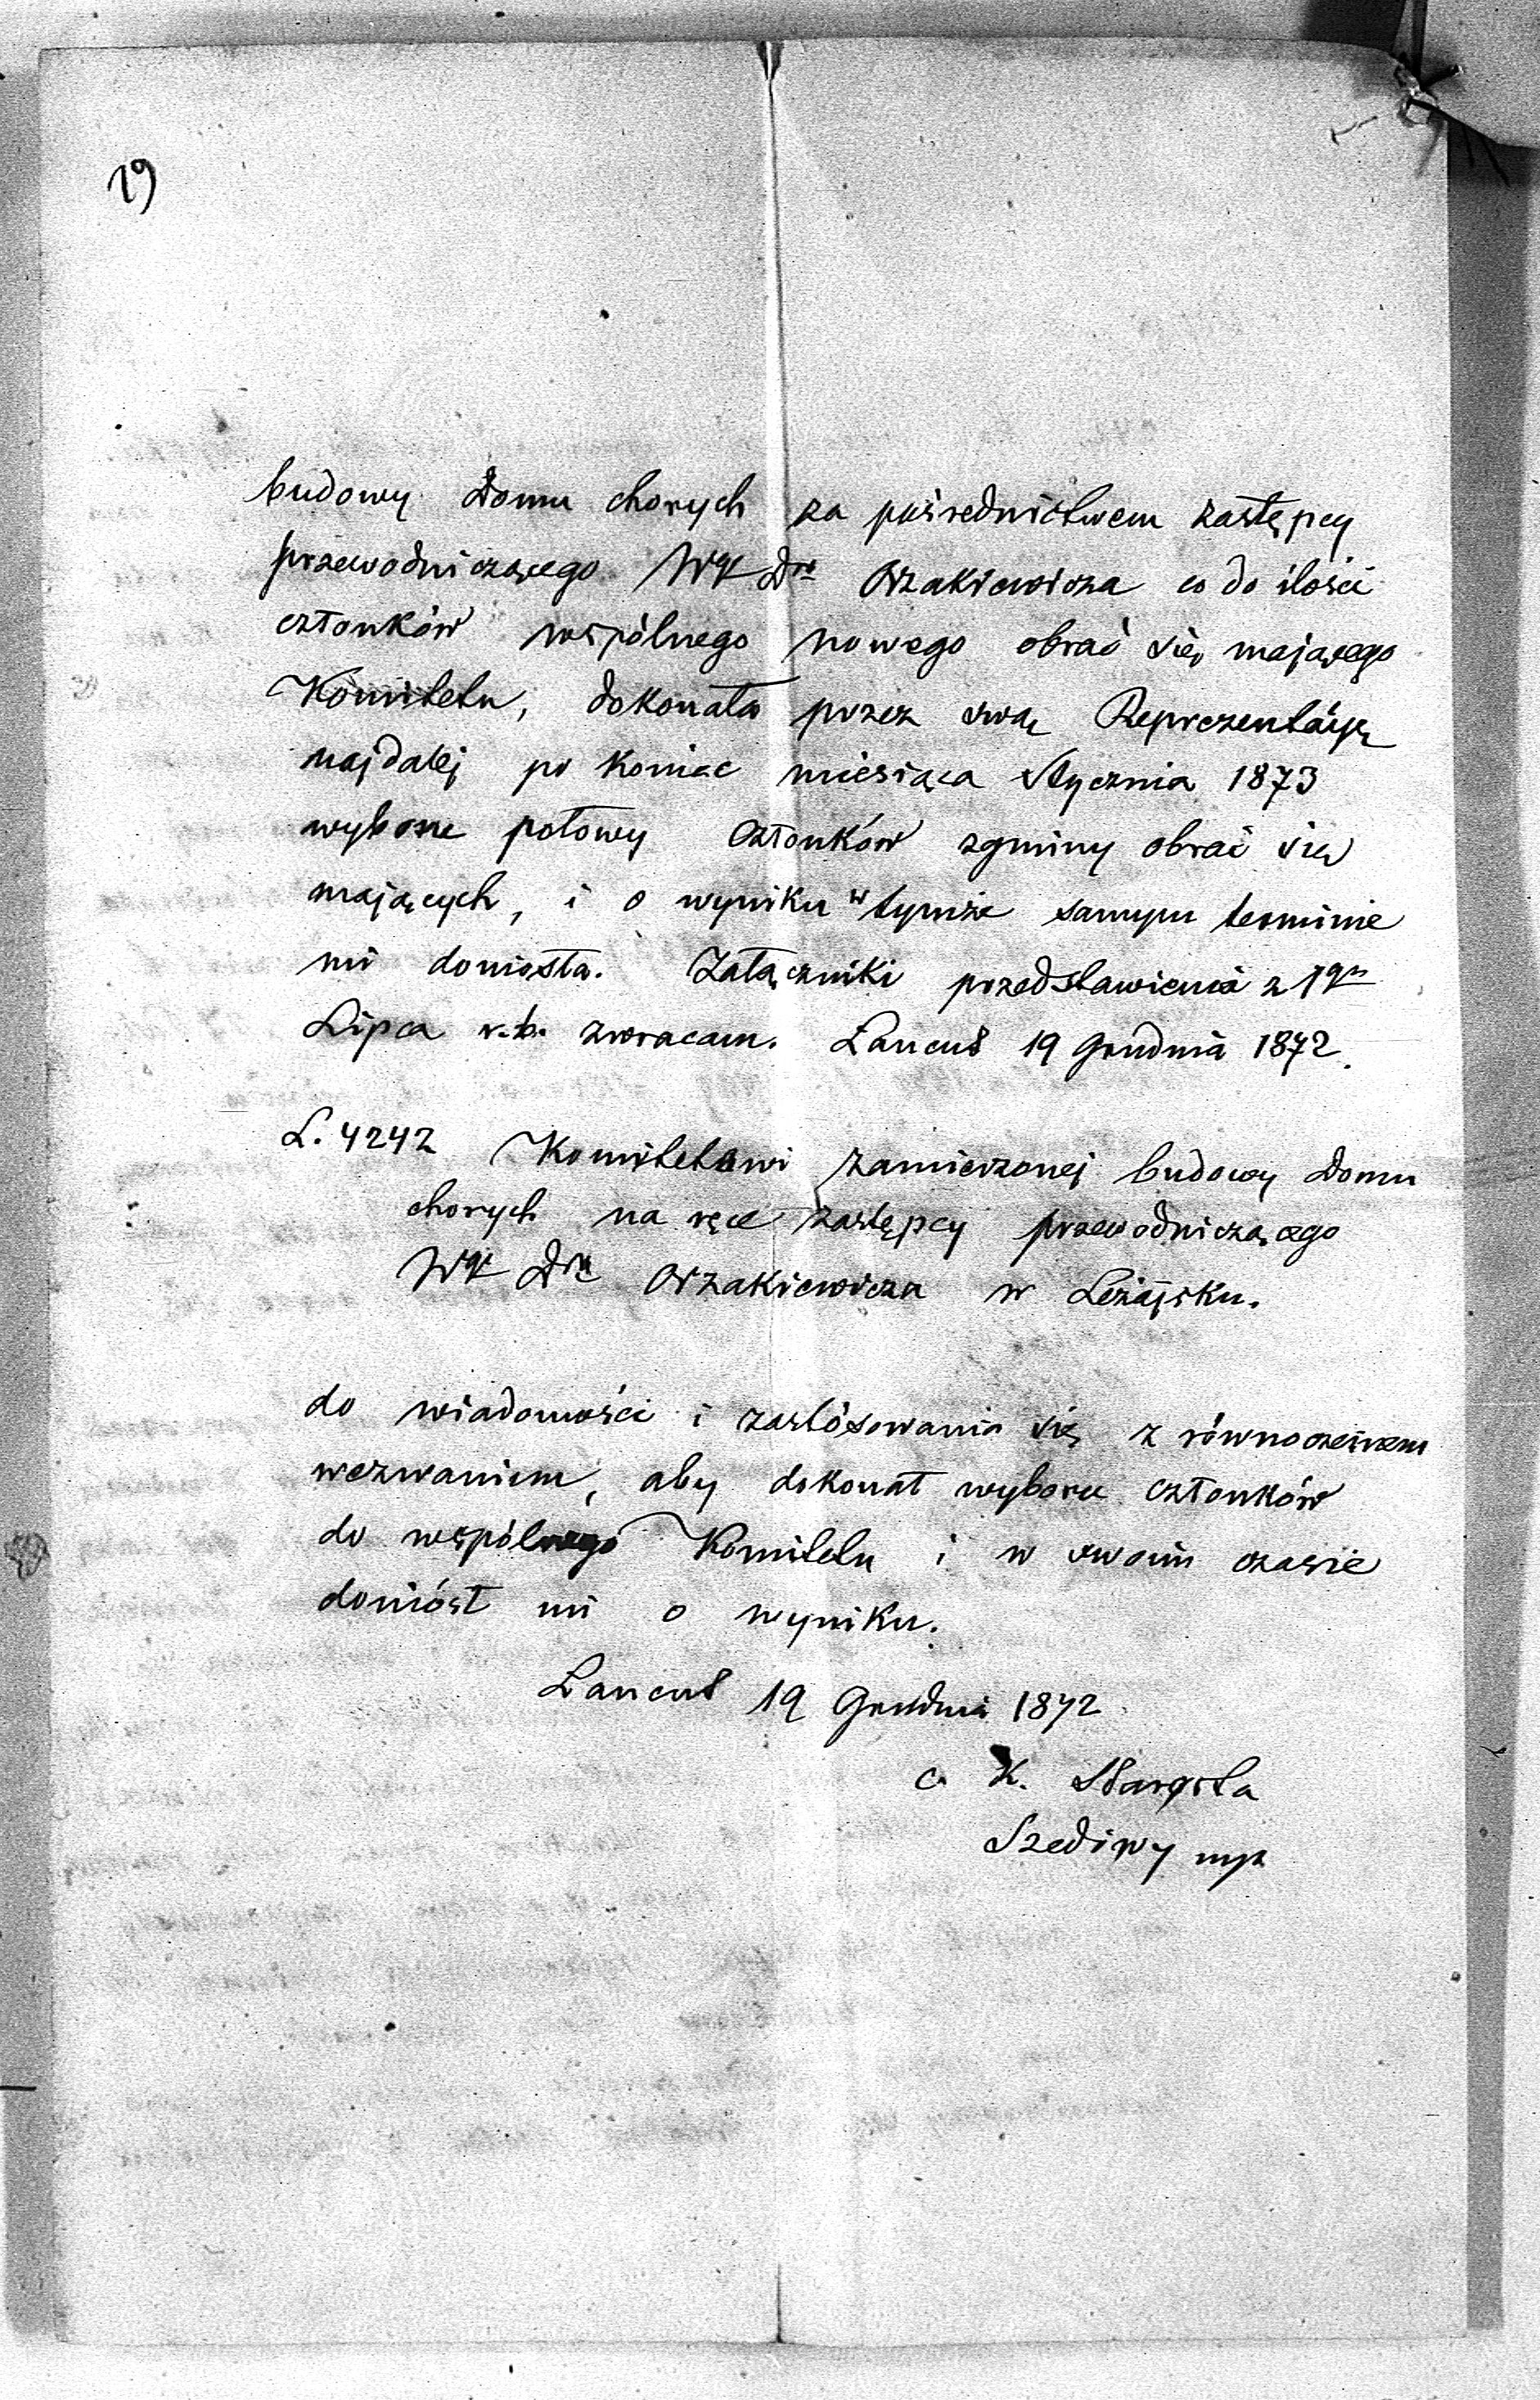 19
budowy Domu chorych za pośrednictwem zastępcy
przewodniczącego Wgo Dra Orzakiewicza co do ilości
członków wspólnego nowego obrać się mającego
Komitetu, dokonała przez swą Reprezentację
najdalej po koniec miesiąca Stycznia 1873
wyboru połowy członków zgminy obrać się
mających, i o wyniku w tymże samym terminie
mi doniosła. Załączniki przedstawienia z 19go
Lipca r.b. zwracam. Łańcut 19 Grudnia 1872.
L. 4242 Komitetowi zamierzonej budowy Domu
chorych na ręce zastępcy przewodniczącego
Wgo Dra Orzakiewicza w Leżajsku.
do wiadomości i zastósowania się z równoczesnem
wezwaniem, aby dokonał wyboru członków
do wspólnego Komitetu i w swoim czasie
doniósł mi o wyniku.
Łańcut 19 Grudnia 1872
C. K. Starosta
Szediwy mp